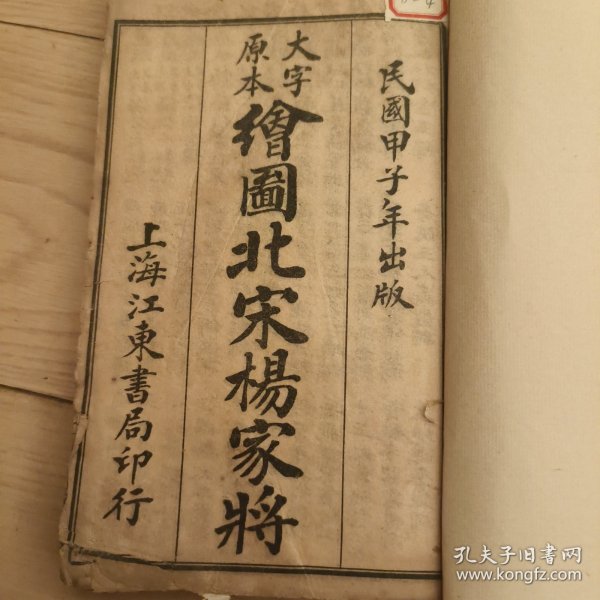 民國甲子年出版
大字
原本
繪圖北宋楊家將
上海江東書局印行
孔夫子旧书网
www.kongfz.com